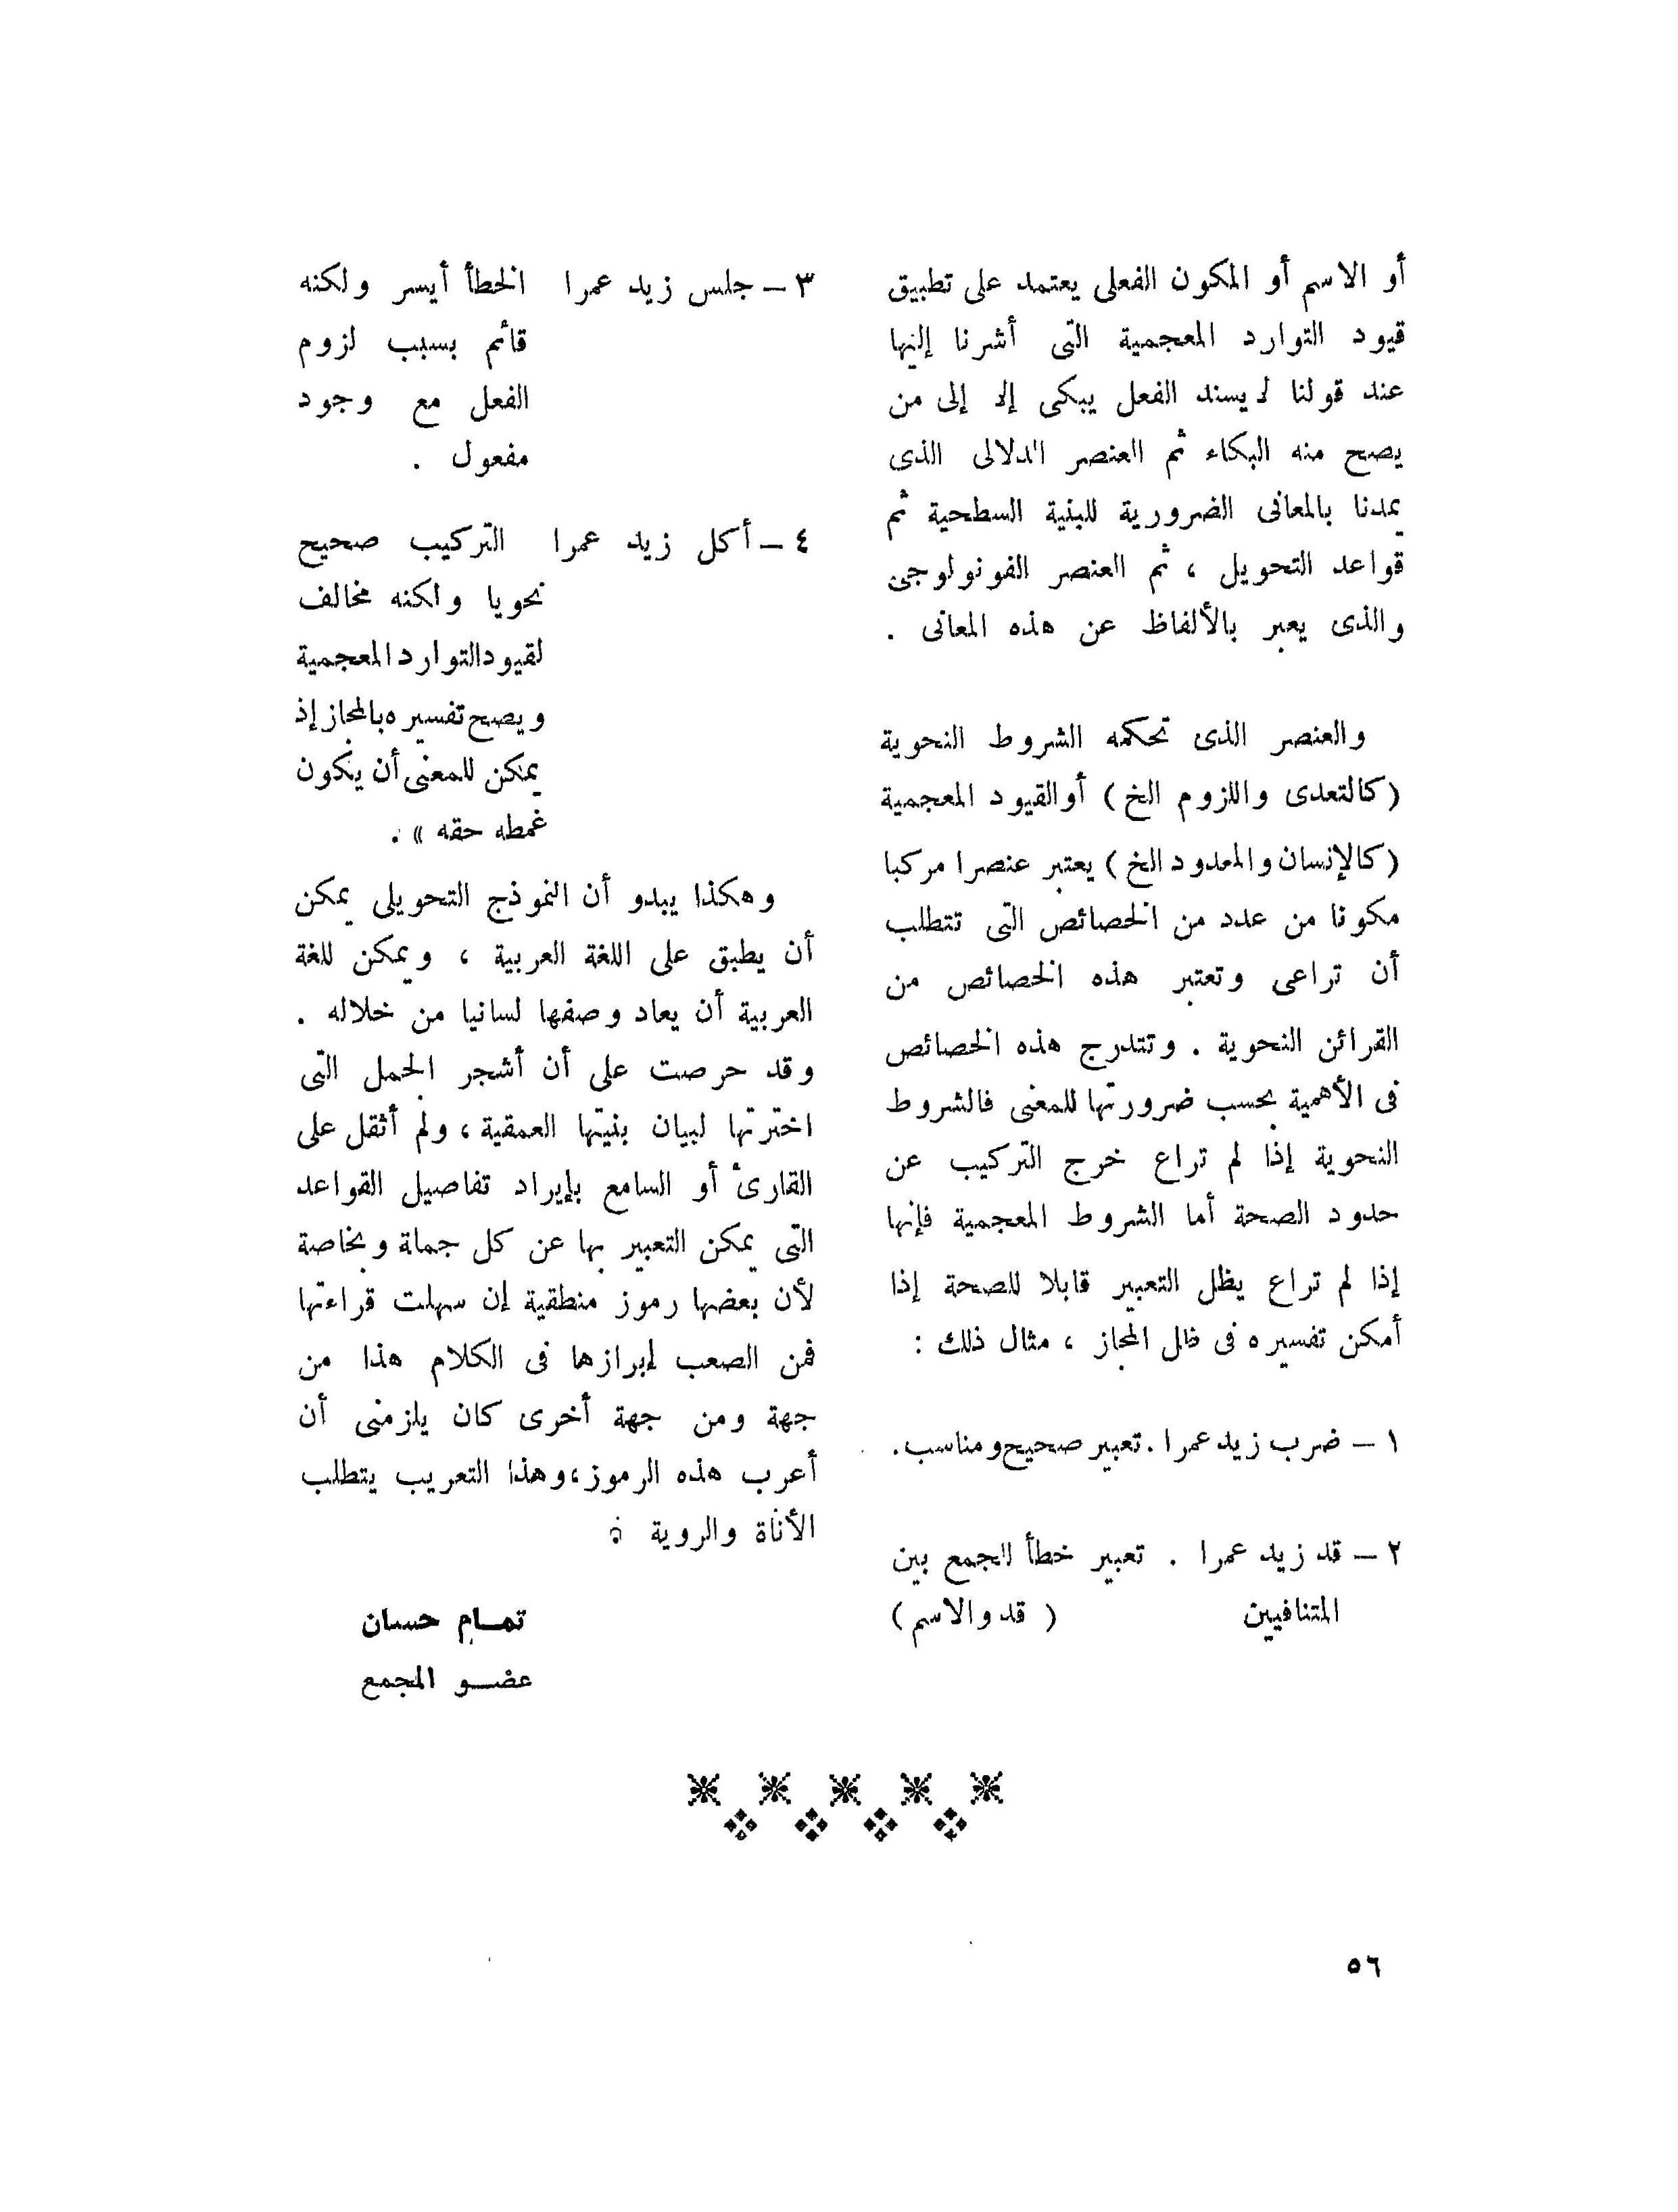 أو الاسم أو المكون الفعلى يعتمد على تطبيق
قيود التوارد المعجمية التى أشرنا إليها
عند قولنا لا يسند الفعل يبكى إلا إلى من
يصح منه البكاء ثم العنصر الدلالى الذى
يمدنا بالمعانى الضرورية للبنية السطحية ثم
قواعد التحويل ، ثم العنصر الفونولوجى
والذى يعبر بالألفاظ عن هذه المعانى .
والعنصر الذى تحكمه الشروط النحوية
(كالتعدى واللزوم الخ) أو القيود المعجمية
(كالإنسان والمعدود الخ) يعتبر عنصرا مركبا
مكونا من عدد من الخصائص التى تتطلب
أن تراعى وتعتبر هذه الخصائص من
القرائن النحوية . وتتدرج هذه الخصائص
فى الأهمية بحسب ضرورتها للمعنى فالشروط
النحوية إذا لم تراع خرج التركيب عن
حدود الصحة أما الشروط المعجمية فإنها
إذا لم تراع يظل التعبير قابلا للصحة إذا
أمكن تفسيره فى ظل المجاز ، مثال ذلك :
١ – ضرب زيد عمرا . تعبير صحيح ومناسب.
٢ – قد زيد عمرا . تعبير خطأ للجمع بين
المتنافيين ( قد والاسم )
٣ – جلس زيد عمرا الخطأ أيسر ولكنه
قائم بسبب لزوم
الفعل مع وجود
مفعول .
٤ – أكل زيد عمرا التركيب صحيح
نحويا ولكنه مخالف
لقيود التوارد المعجمية
ويصح تفسيره بالمجاز إذ
يمكن للمعنى أن يكون
غمطه حقه » .
وهكذا يبدو أن النموذج التحويلى يمكن
أن يطبق على اللغة العربية ، ويمكن للغة
العربية أن يعاد وصفها لسانيا من خلاله .
وقد حرصت على أن أشجر الجمل التى
اخترتها لبيان بنيتها العمقية ، ولم أثقل على
القارئ أو السامع بإيراد تفاصيل القواعد
التى يمكن التعبير بها عن كل جملة وبخاصة
لأن بعضها رموز منطقية إن سهلت قراءتها
فمن الصعب إبرازها فى الكلام هذا من
جهة ومن جهة أخرى كان يلزمنى أن
أعرب هذه الرموز ، وهذا التعريب يتطلب
الأناة والروية
تمـام حسان
عضـو المجمع
٥٦